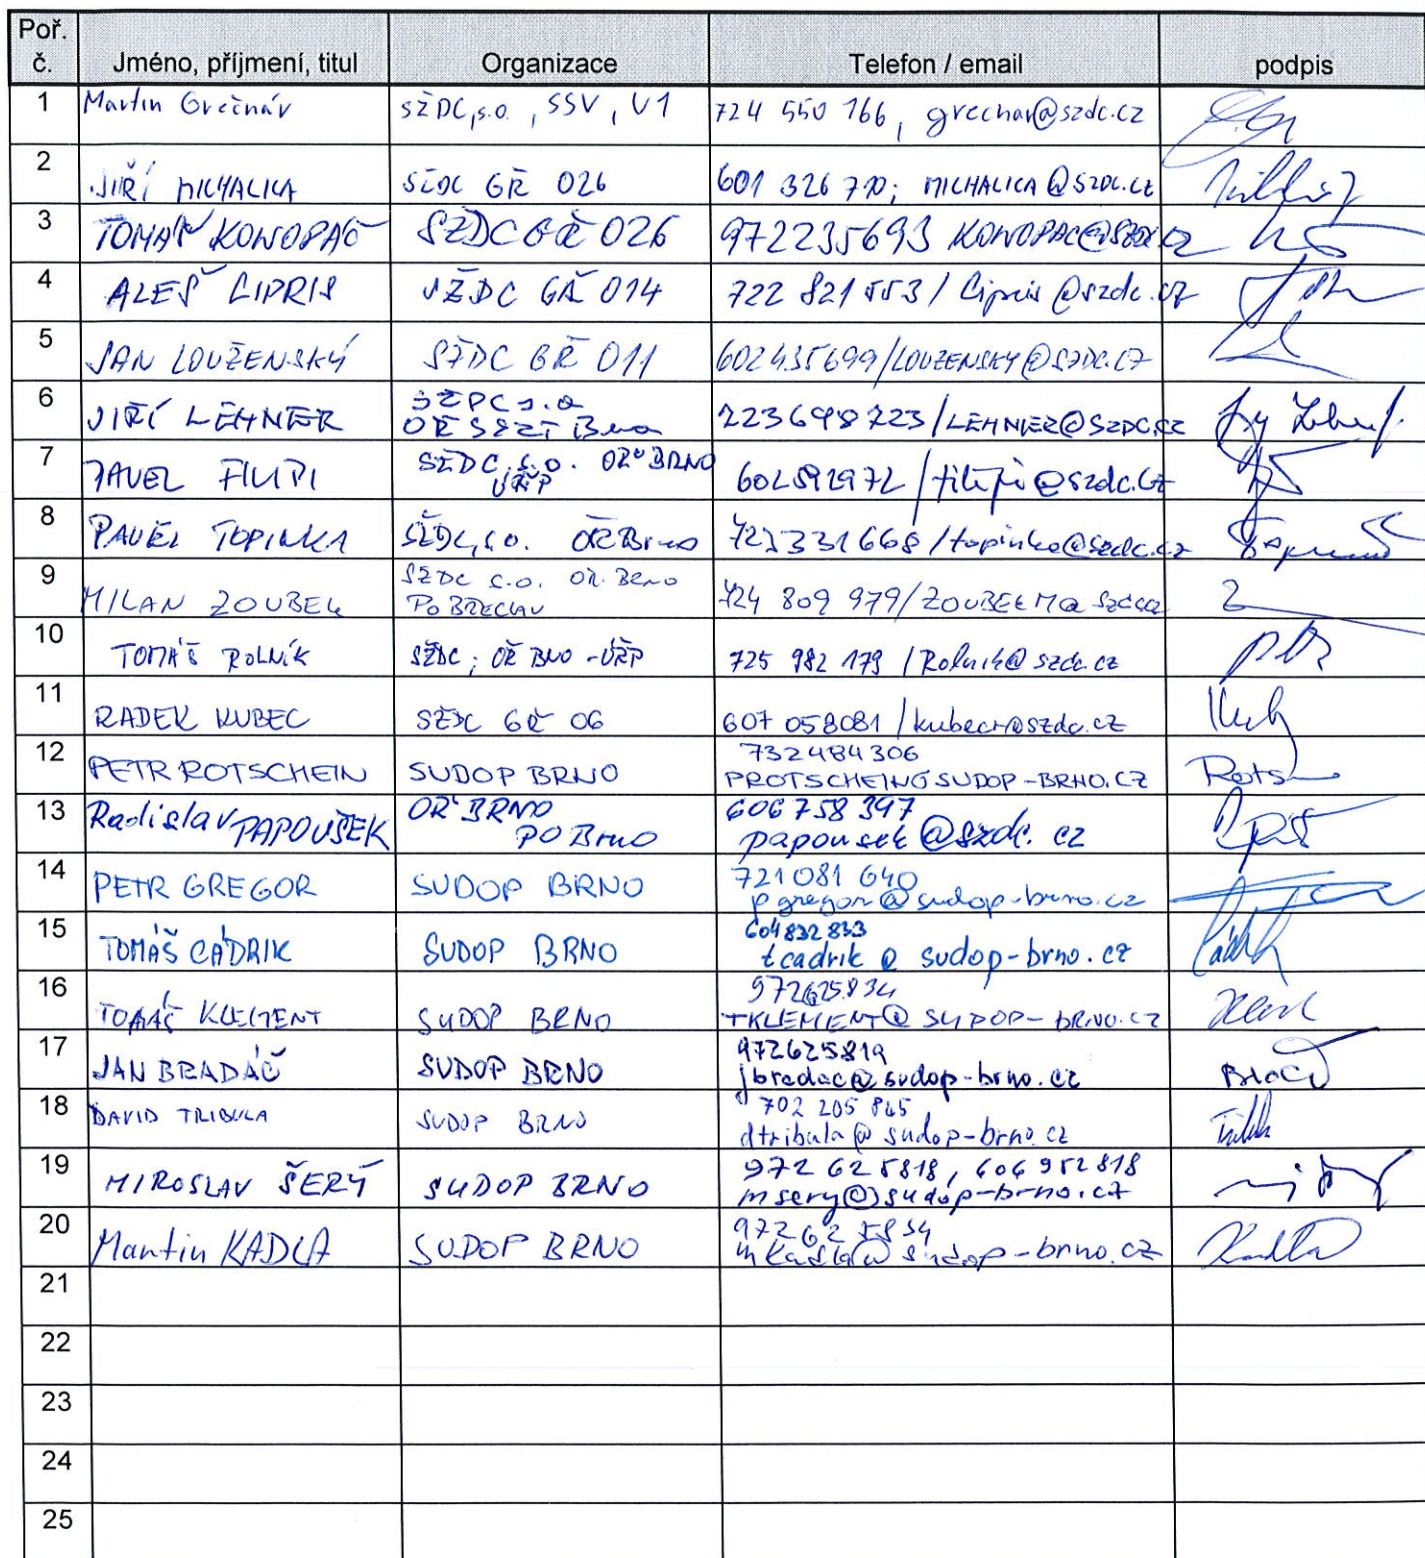 Poř. č. Jméno, příjmení, titul Organizace Telefon / email podpis
1 Martin Grečnár SŽDC, s.o., SSV, U1 724 550 166, grecnar@szdc.cz
2 JIŘÍ MICHALICA SŽDC GŘ 026 601 326 710; MICHALICA@SZDC.CZ
3 TOMÁŠ KONOPÁČ SŽDC GŘ 026 972235693 KONOPAC@SZDC.CZ
4 ALEŠ CIPRIS SŽDC GŘ 014 722 821 553 / Cipris@szdc.cz
5 JAN LOUŽENSKÝ SŽDC GŘ 011 602435699/LOUZENSKY@SZDC.CZ
6 JIŘÍ LEHNER SŽDC s.o.
OŘ SSZT Brno 223698723/LEHNER@SZDC.CZ
7 PAVEL FILIPI SŽDC, s.o. OŘ BRNO
ÚŘP 602592972/filipi@szdc.cz
8 PAVEL TOPINKA SŽDC, s.o. OŘ Brno 723331668/topinka@szdc.cz
9 MILAN ZOUBEK SŽDC s.o. OŘ. BRNO
PO BŘECLAV 724 809 979/ZOUBEKM@szdc.cz
10 TOMÁŠ ROLNÍK SŽDC; OŘ BNO - ÚŘP 725 982 179 / Rolnik@szdc.cz
11 RADEK KUBEC SŽDC GŘ O6 607 058081 / kubecr@szdc.cz
12 PETR ROTSCHEIN SUDOP BRNO 732484306
PROTSCHEIN@SUDOP-BRNO.CZ Rots
13 Radislav PAPOUŠEK OŘ BRNO
PO Brno 606 758 397
papousek@szdc.cz
14 PETR GREGOR SUDOP BRNO 721 081 640
pgregor@sudop-brno.cz
15 TOMÁŠ CÁDRIK SUDOP BRNO 604 832 833
tcadrik@sudop-brno.cz
16 TOMÁŠ KLEMENT SUDOP BRNO 972625834
TKLEMENT@SUDOP-BRNO.CZ
17 JAN BRADÁČ SUDOP BRNO 972625819
jbradac@sudop-brno.cz
18 DAVID TRIBULA SUDOP BRNO 702 205 845
dtribula@sudop-brno.cz
19 MIROSLAV ŠERÝ SUDOP BRNO 972 625818, 606 952 818
msery@sudop-brno.cz
20 Martin KADLA SUDOP BRNO 972 62 5834
mkadla@sudop-brno.cz Kadla
21
22
23
24
25